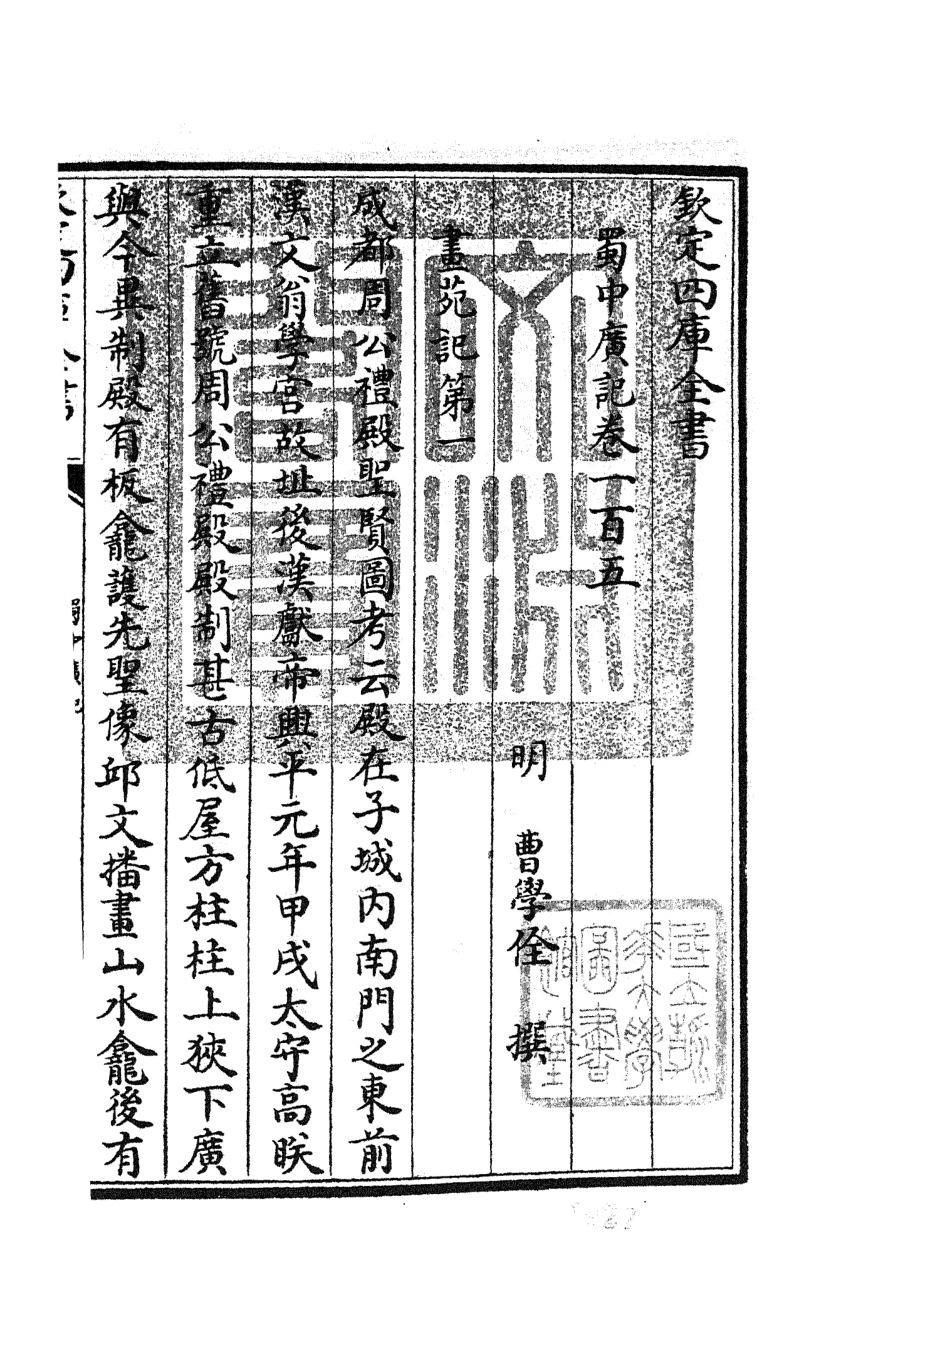 欽定四庫全書
蜀中廣記卷一百五
明　曹學佺　撰
畫苑記第一
成都周公禮殿聖賢圖考云殿在子城内南門之東前
漢文翁學宮故址後漢獻帝興平元年甲戌太守高眹
重立舊號周公禮殿殿制甚古低屋方柱柱上狹下廣
與今異制殿有板龕護先聖像邱文播畫山水龕後有